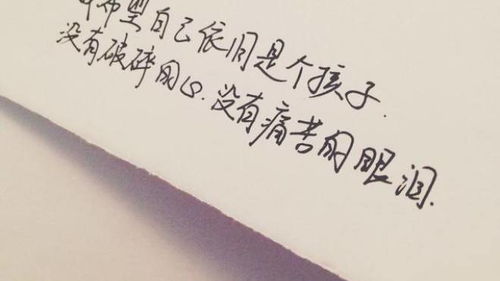 希望自己依旧是个孩子.
没有破碎的心.没有痛苦的眼泪.